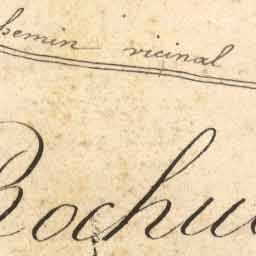 Chemin vicinal
Rochu